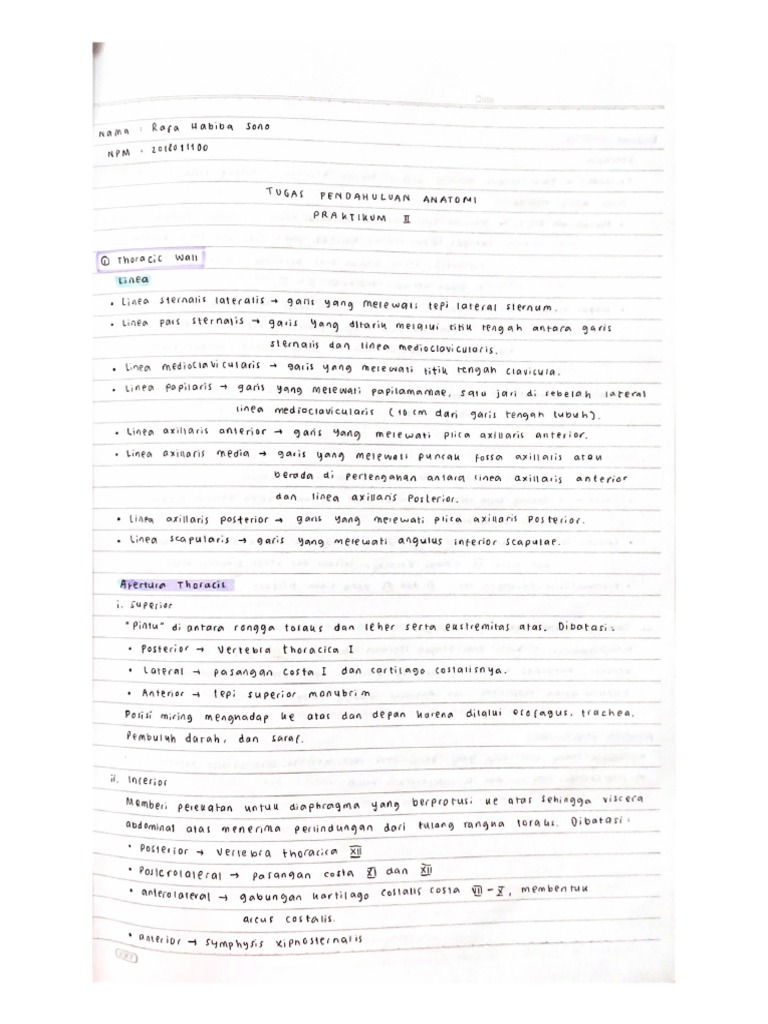 Date
Nama : Rafa Habiba Sono
NPM : 2018011100
TUGAS PENDAHULUAN ANATOMI
PRAKTIKUM II
① Thoracic Wall
Linea
• Linea sternalis lateralis → garis yang melewati tepi lateral sternum.
• Linea pars sternalis → garis yang ditarik melalui titik tengah antara garis
sternalis dan linea medioclavicularis.
• Linea medioclavicularis → garis yang melewati titik tengah clavicula.
• Linea papilaris → garis yang melewati papilamamae, satu jari di sebelah lateral
linea medioclavicularis (10 cm dari garis tengah tubuh).
• Linea axillaris anterior → garis yang melewati plica axillaris anterior.
• Linea axillaris media → garis yang melewati puncak fossa axillaris atau
berada di pertengahan antara linea axillaris anterior
dan linea axillaris posterior.
• Linea axillaris posterior → garis yang melewati plica axillaris posterior.
• Linea scapularis → garis yang melewati angulus inferior scapulae.
Apertura Thoracis
i. Superior
"Pintu" di antara rongga toraks dan leher serta ekstremitas atas. Dibatasi :
• Posterior → vertebra thoracica I
• Lateral → pasangan costa I dan cartilago costalisnya.
• Anterior → tepi superior manubrim
Posisi miring menghadap ke atas dan depan karena dilalui oesofagus, trachea,
pembuluh darah, dan saraf.
ii. Inferior
Memberi perlekatan untuk diaphragma yang berprotusi ke atas sehingga viscera
abdominal atas menerima perlindungan dari tulang rangka toraks. Dibatasi :
• Posterior → vertebra thoracica XII
• Posterolateral → pasangan costa XI dan XII
• anterolateral → gabungan kartilago costalis costa VII - X, membentuk
arcus costalis.
• anterior → symphysis xiphosternalis